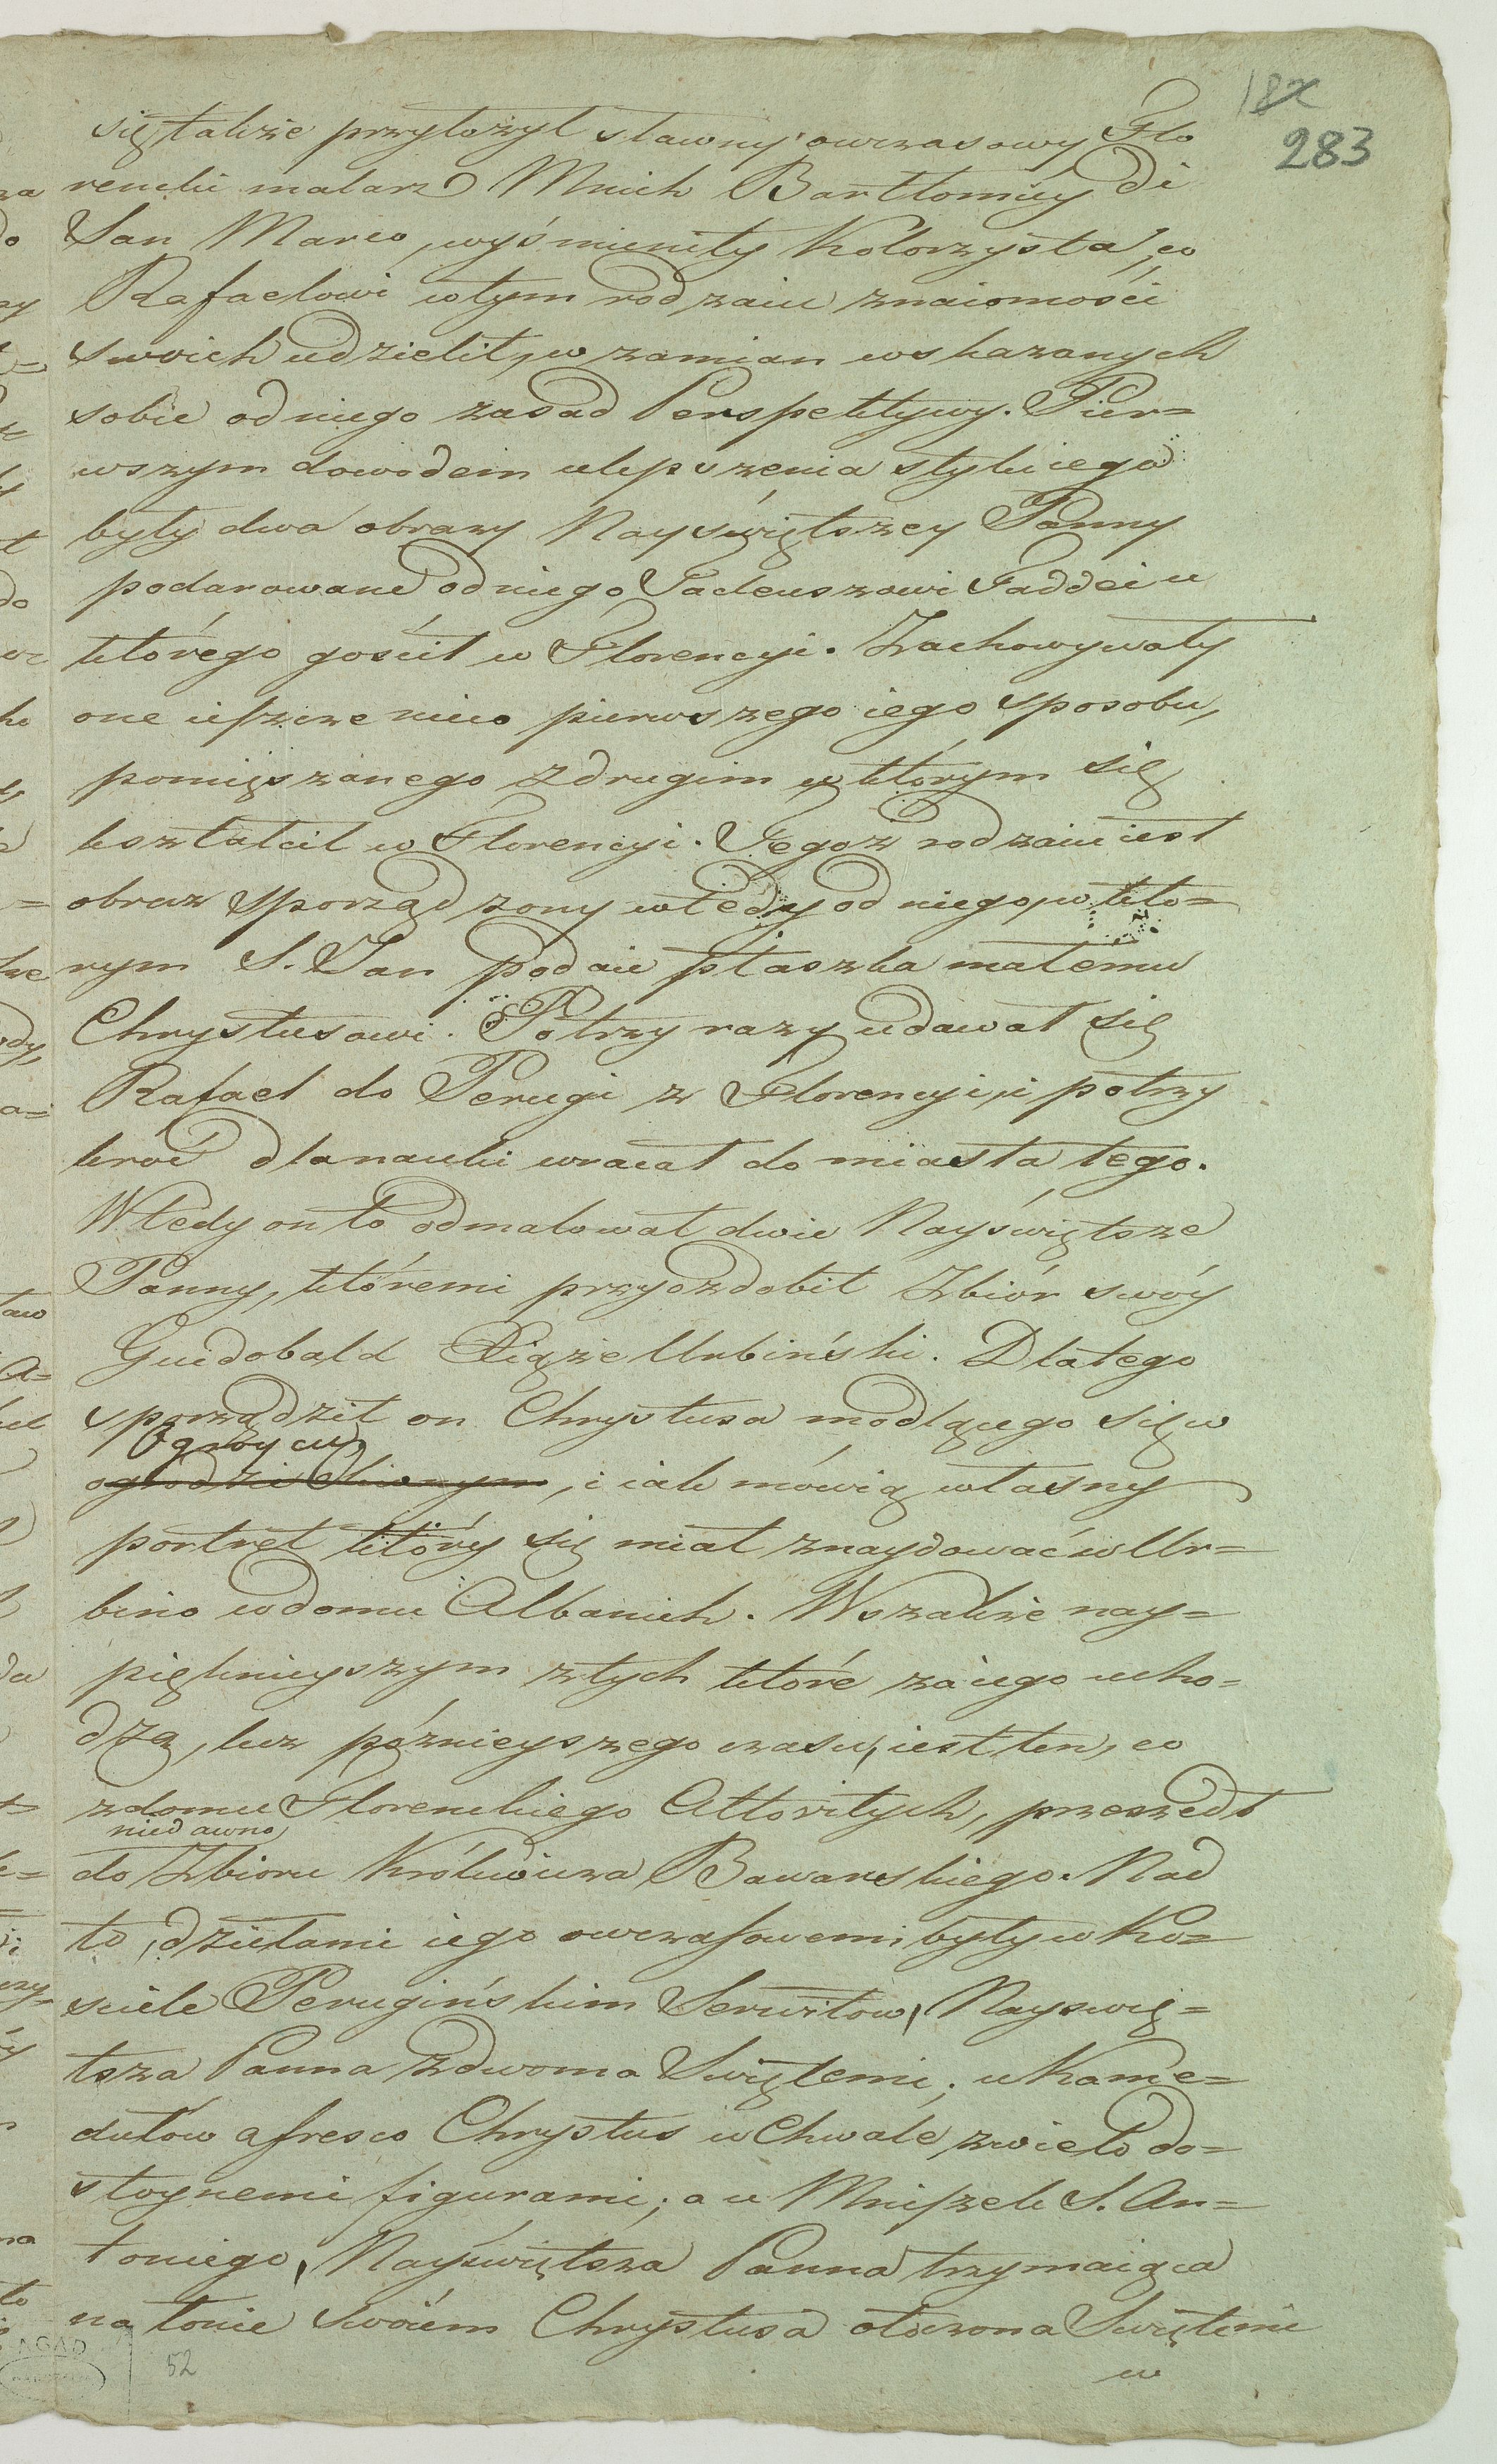 283
się także przyłożył sławny owczasowy Flo
rencki malarz Mnich Bartłomiéy di
San Marco, wyśmienity Kolorzysta, co
Rafaelowi wtym rodzaiu znaiomości
swoich udzielił, w zamian wskazanych
sobie od niego zasad Perspektywy. Pier=
wszym dowodem ulepszenia stylu iego
były dwa obrazy Nayświętszey Panny
podarowane od niego Tadeuszowi Taddei u
którego gościł w Florencyi. Zachowywały
one ieszcze nieco pierwszego iego sposobu,
pomięszanego z drugim w którym się
kształcił w Florencyi. Tegoż rodzaiu iest
obraz sporządzony wtedy od niego, w któ=
rym S. Jan podaie ptaszka małemu
Chrystusowi. Po trzy razy udawał się
Rafael do Perugi z Florencyi, i po trzy
kroć dla nauki wracał do miasta tego.
Wtedy on to odmalował dwie Nayświętsze
Panny, któremi przyozdobił Zbiór swóy
Guidobald Xiąże Urbiński. Dla tego
sporządził on Chrystusa modlącego się w
Ogróycu
ogrodzie Oliwnym, i iak mówią własny
portret który się miał znaydować w Ur=
bino w domu Albanich. Wszakże nay=
pięknieyszym z tych które za iego ucho=
dzą, lecz póznieyszego czasu, iest ten, co
z domu Florenckiego Altovitych, przeszedł
niedawno
do Zbioru Królewicza Bawarskiego. Nad
to, dziełami iego owczasowemi były w Ko=
sciele Perugińskim Serwitow, Nayswię=
tsza Panna z dwoma Swiętemi; u Kame=
dułów a fresco Chrystus w Chwale, z wielo do=
stoynemi figurami; a u Mniszek S. An=
toniego, Nayświętsza Panna trzymaiąca
na łonie swoiem Chrystusa otoczona Swiętemi
w
AGAD
52